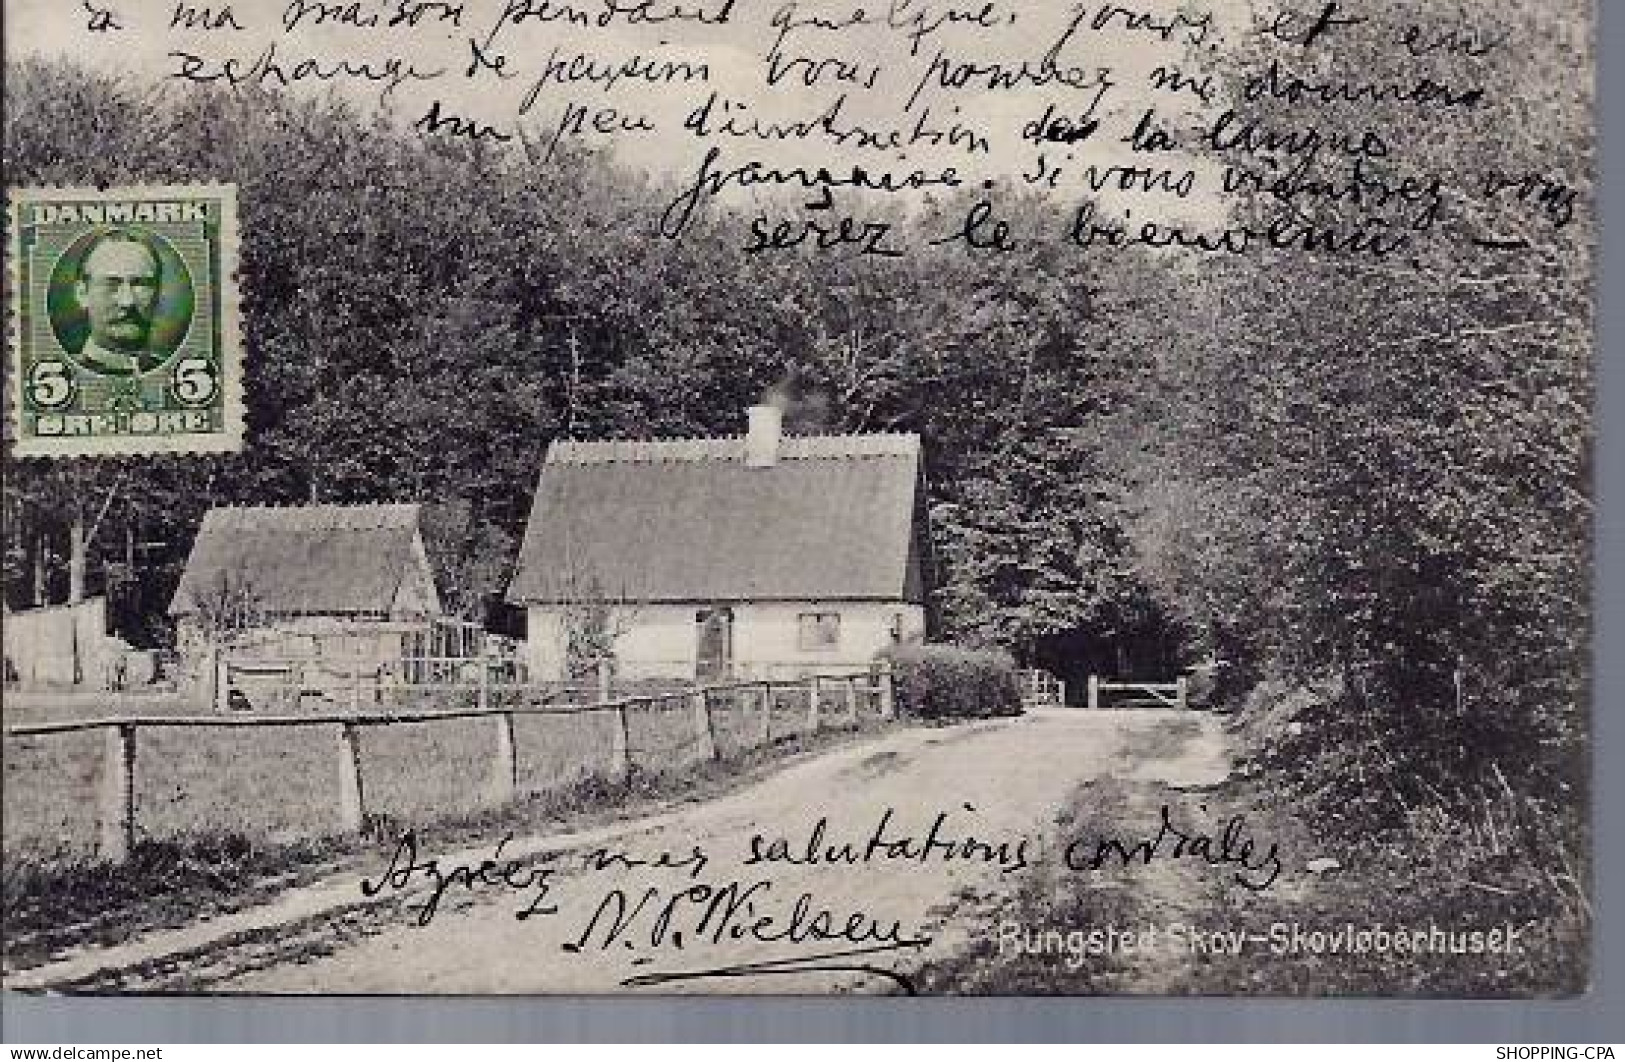 à ma maison pendant quelques jours, et en
echange de paysim vous pourrez me donner
un peu d'instruction de la langue
française. Si vous viendrez vous
serez le bienvenu. —
DANMARK
5 5
ØRE ØRE
Agréez mes salutations cordiales.
N. P. Nielsen
Rungsted Skov-Skovløberhuset.
https://www.delcampe.net
SHOPPING-CPA